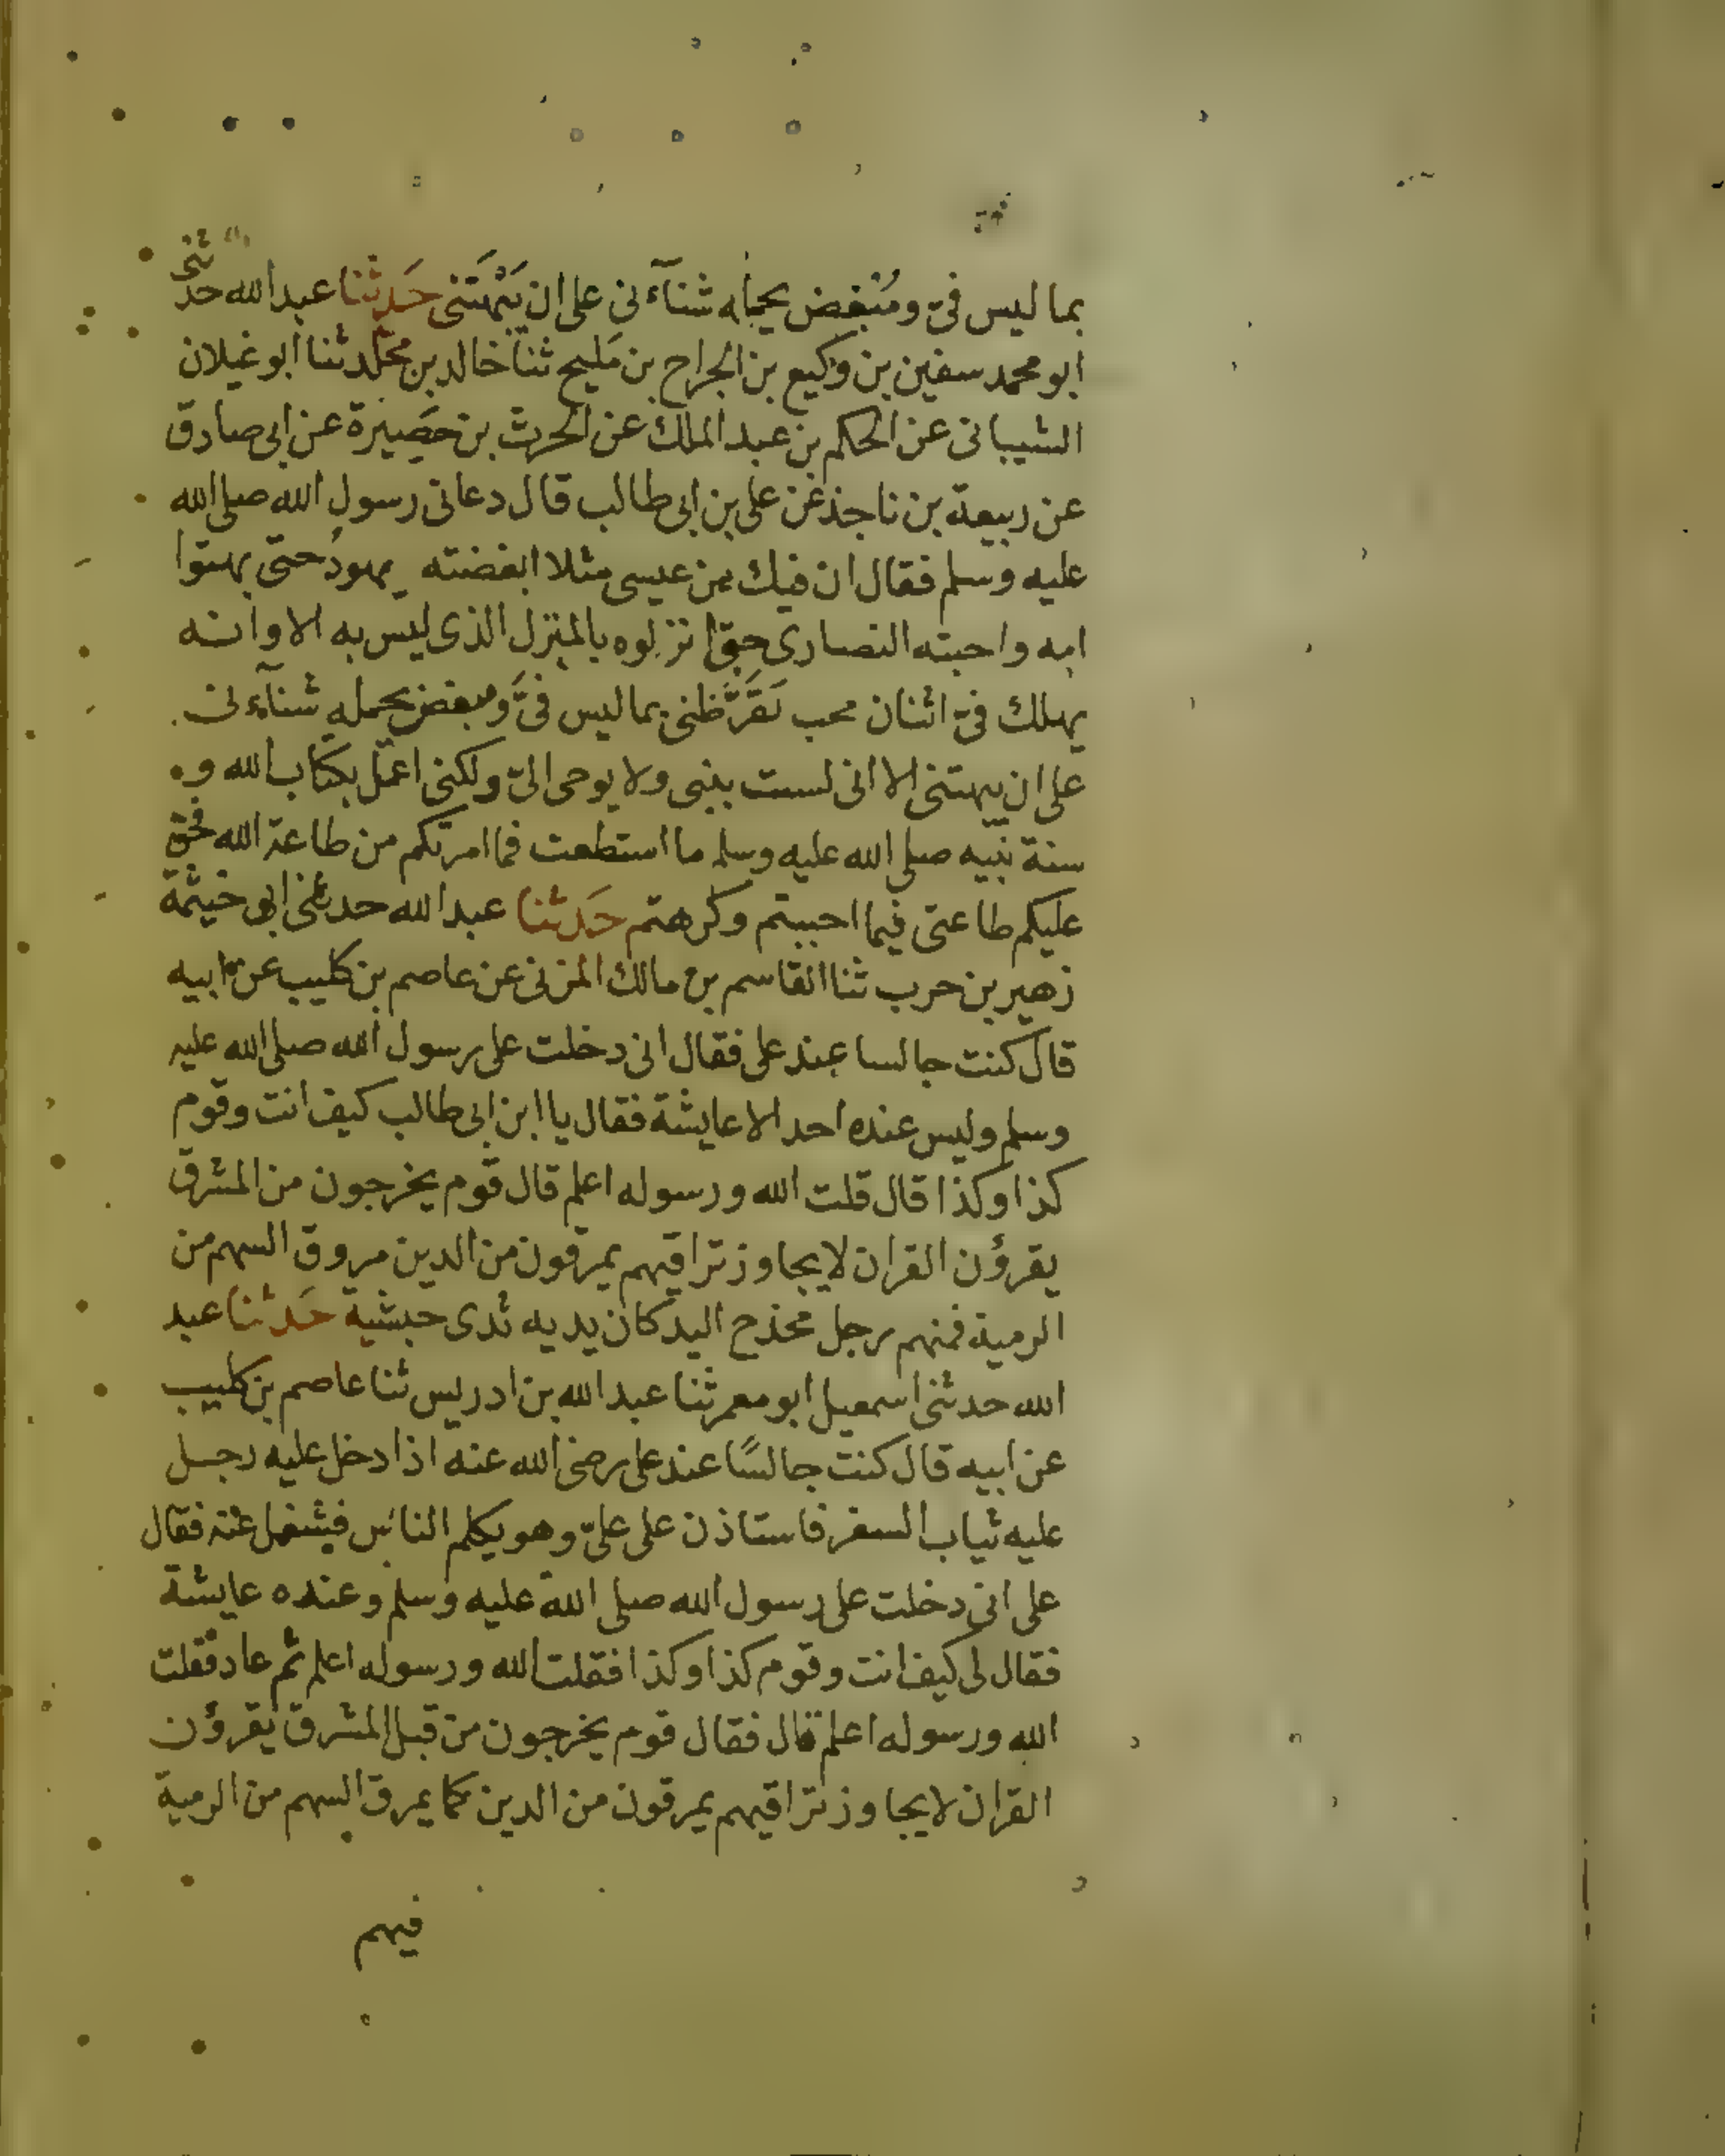 بما ليس فيّ ومُبْغض يحمله شنآء نى على ان يَبْهَتَنى حَدثنا عبد الله حدثنى
ابو محمد سفين بن وكيع بن الجراح بن مَليح ثنا خالد بن مخلد ثنا ابو غيلان
الشيبانى عن الحكم بن عبد الملك عن الحرث بن حَصِيرة عن ابى صادق
عن ربيعة بن ناجذ عن على بن ابى طالب قال دعانى رسول الله صلى الله
عليه وسلم فقال ان فيك من عيسى مثلا ابغضته يهودُ حتى بهتوا
امه واحبته النصارى حتى انزلوه بالمنزل الذى ليس به الا وانه
يهلك فيّ اثنان محب يَقَرّظنى بما ليس فيَّ ومبغض يحمله شنآء نى
على ان يبهتنى الا انى لست بنبى ولا يوحى الىّ ولكنى اعمل بكتاب الله و
سنة نبيه صلى الله عليه وسلم ما استطعت فما امرتكم من طاعة الله فحق
عليكم طاعتى فيما احببتم وكرهتم حَدثنا عبد الله حدثنى ابو خيثمة
زهير بن حرب ثنا القاسم بن مالك المزنى عن عاصم بن كليب عن ابيه
قال كنت جالسا عند على فقال انى دخلت على رسول الله صلى الله عليه
وسلم وليس عنده احد الا عايشة فقال يا ابن ابى طالب كيف انت وقوم
كذا وكذا قال قلت الله ورسوله اعلم قال قوم يخرجون من المشرق
يقرؤن القران لا يجاوز تراقيهم يمرقون من الدين مروق السهم من
الرمية فمنهم رجل مخدج اليد كان يديه ثدى حبشية حَدثنا عبد
الله حدثنى اسمعيل ابو معمر ثنا عبد الله بن ادريس ثنا عاصم بن كليب
عن ابيه قال كنت جالسًا عند على رضى الله عنه اذا دخل عليه رجل
عليه ثياب السفر فاستاذن على علىّ وهو يكلم الناس فشغل عنه فقال
على انى دخلت على رسول الله صلى الله عليه وسلم وعنده عايشة
فقال لى كيف انت وقوم كذا وكذا فقلت الله ورسوله اعلم ثم عاد فقلت
الله ورسوله اعلم قال فقال قوم يخرجون من قبل المشرق يقرؤن
القران لا يجاوز تراقيهم يمرقون من الدين كما يمرق السهم من الرمية
فيهم